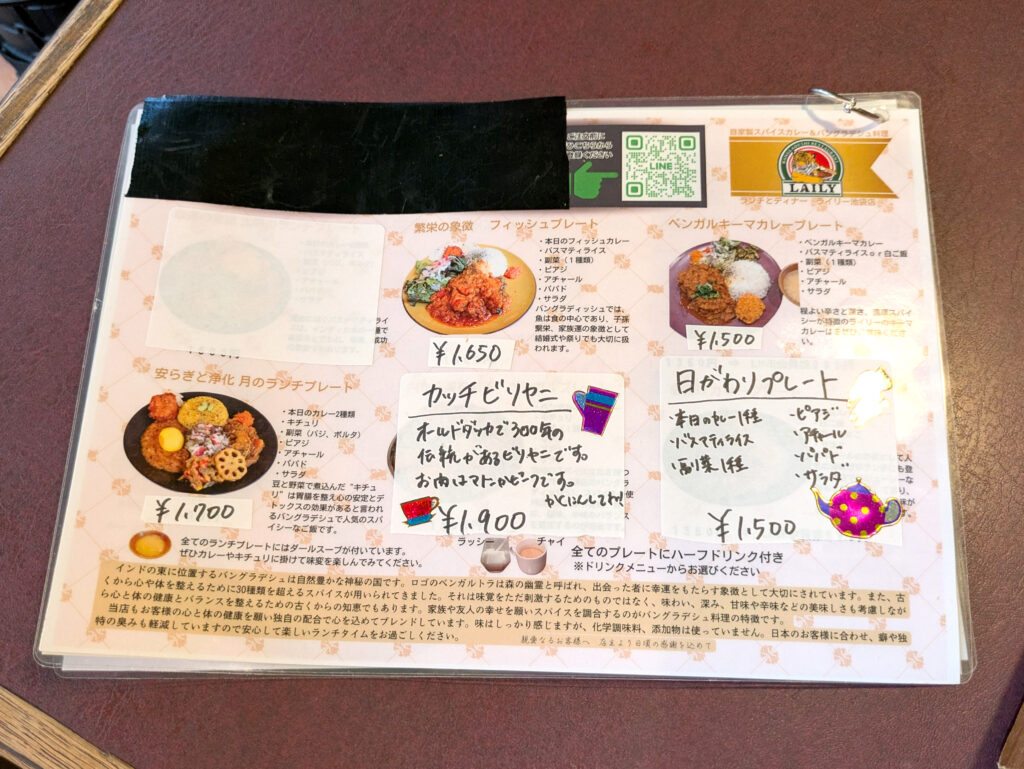 ご注文前に
ください
LINE
自家製スパイスカレー&バングラデシュ料理
LAILY
ランチとディナー ライリー池袋店
繁栄の象徴 フィッシュプレート
・本日のフィッシュカレー
・バスマティライス
・副菜(1種類)
・ピアジ
・アチャール
・パパド
・サラダ
バングラディッシュでは、
魚は食の中心であり、子孫
繁栄、家族運の象徴として
結婚式や祭りでも大切に扱
われます。
¥1,650
ベンガルキーマカレープレート
・ベンガルキーマカレー
・バスマティライスor白ご飯
・副菜(1種類)
・ピアジ
・アチャール
・サラダ
程よい辛さと深さ、濃厚スパイ
シーが特徴のライリーのキーマ
カレーは
¥1,500
安らぎと浄化 月のランチプレート
・本日のカレー2種類
・キチュリ
・副菜(バジ、ボルタ)
・ピアジ
・アチャール
・パパド
・サラダ
豆と野菜で煮込んだ"キチュ
リ"は胃腸を整え心の安定とデ
トックスの効果があると言われ
るバングラデシュで人気のスパ
イシーなご飯です。
¥1,700
カッチビリヤニ
オールドダッカで300年の
伝統があるビリヤニです。
お肉はマトンかビーフです。
かくにんしてね!
¥1,900
日がわりプレート
・本日のカレー1種
・バスマティライス
・副菜1種
・ピアジ
・アチャール
・パパド
・サラダ
¥1,500
全てのランチプレートにはダールスープが付いています。
ぜひカレーやキチュリに掛けて味変を楽しんでみてください。
ラッシー
チャイ
全てのプレートにハーフドリンク付き
※ドリンクメニューからお選びください
インドの東に位置するバングラデシュは自然豊かな神秘の国です。ロゴのベンガルトラは森の幽霊と呼ばれ、出会った者に幸運をもたらす象徴として大切にされています。また、古
くから心や体を整えるために30種類を超えるスパイスが用いられてきました。それは味覚をただ刺激するためのものではなく、味わい、深み、甘味や辛味などの美味しさも考慮しなが
ら心と体の健康とバランスを整えるための古くからの知恵でもあります。家族や友人の幸せを願いスパイスを調合するのがバングラデシュ料理の特徴です。
当店もお客様の心と体の健康を願い独自の配合で心を込めてブレンドしています。味はしっかり感じますが、化学調味料、添加物は使っていません。日本のお客様に合わせ、癖や独
特の臭みも軽減していますので安心して楽しいランチタイムをお過ごしください。
親愛なるお客様へ 店主より日頃の感謝を込めて